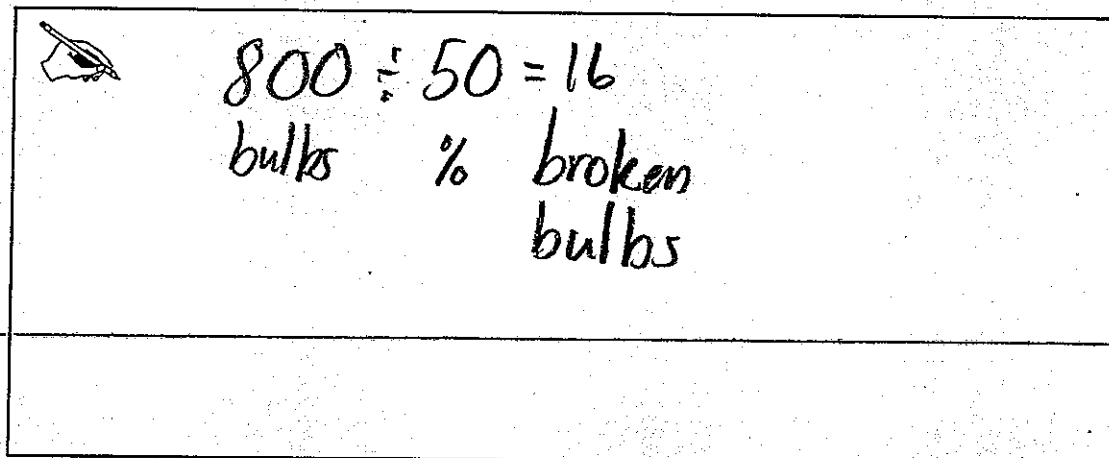 800 ÷ 50 = 16
bulbs % broken
bulbs